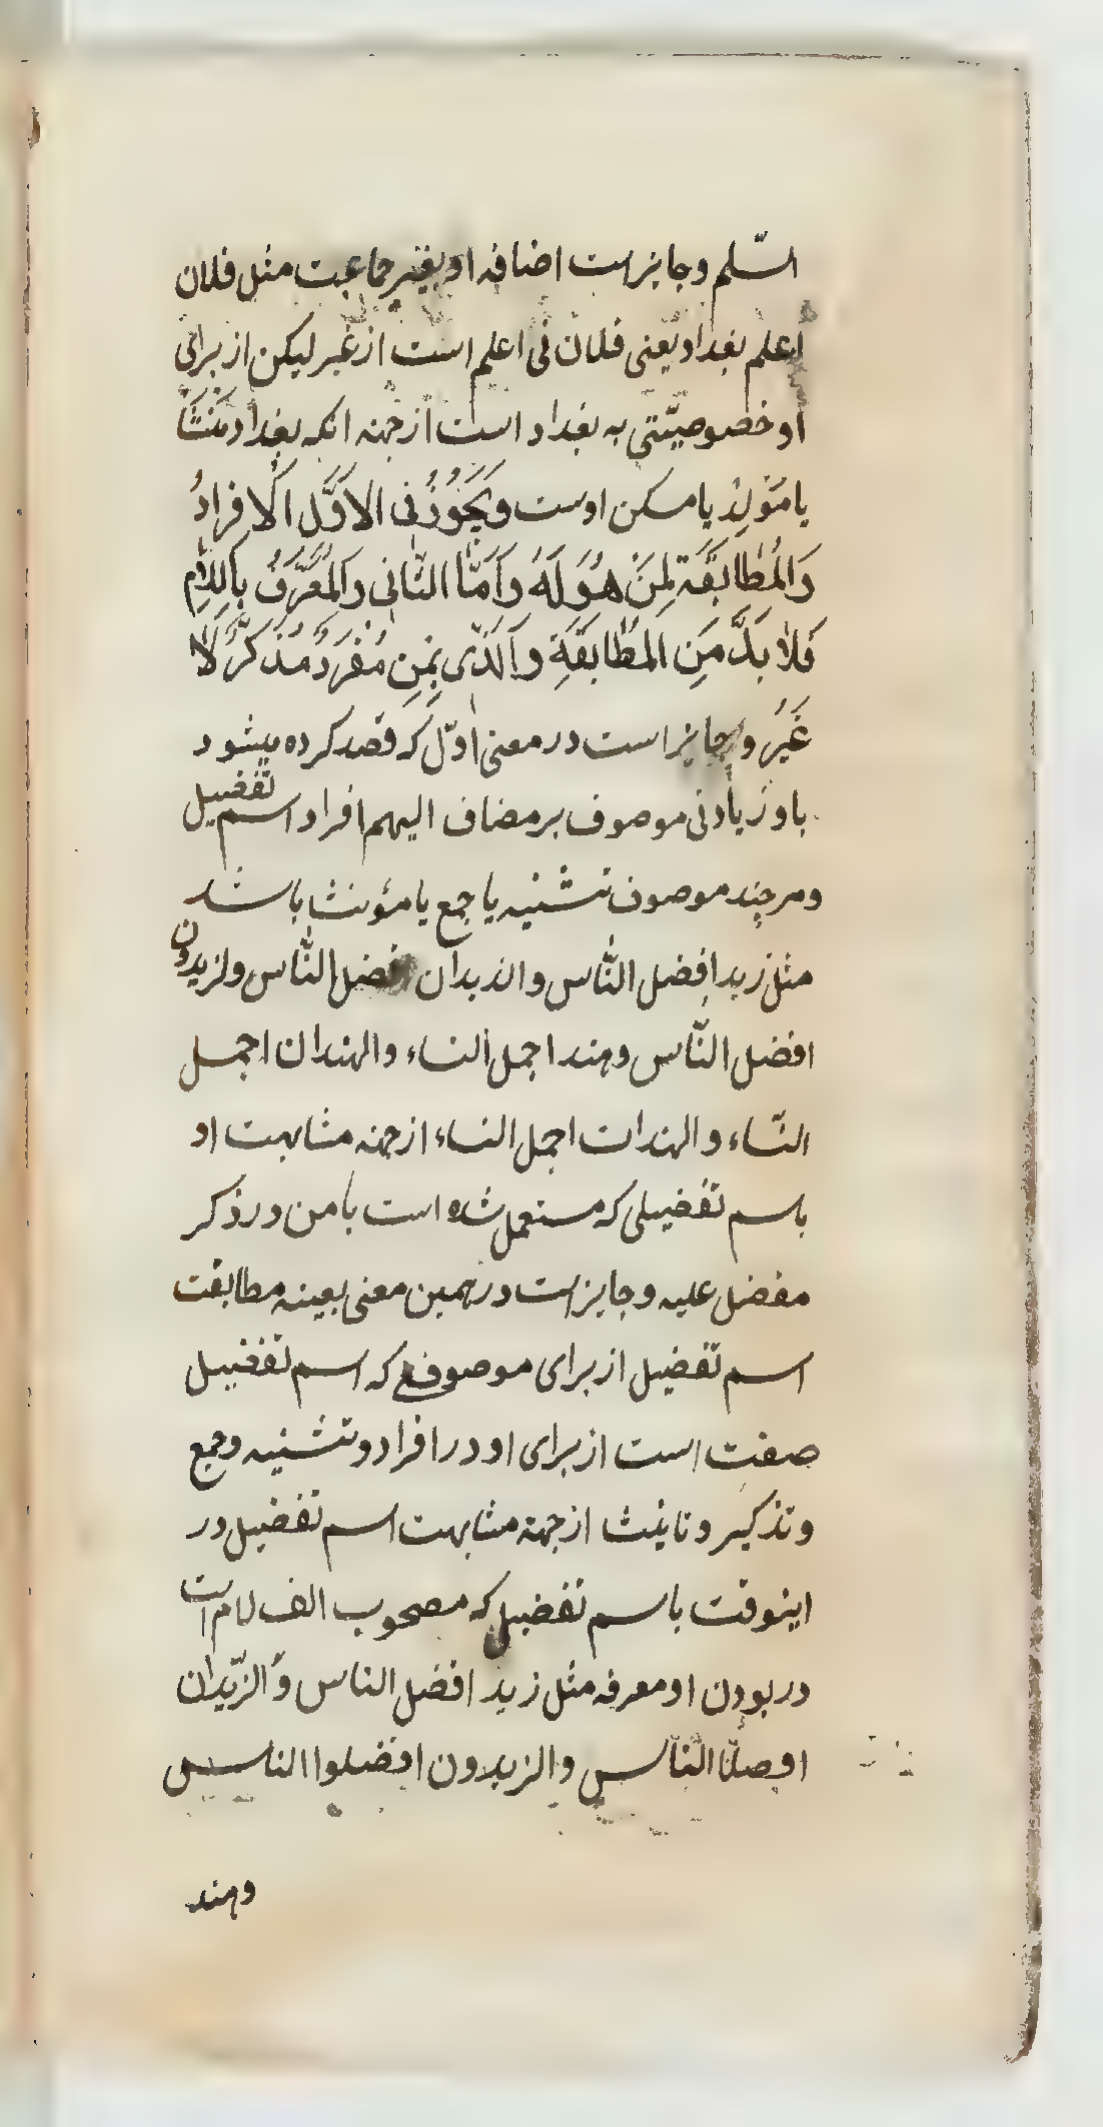 السّلم و جایزست اضافه او بغیر جماعت مثل فلان
اعلم بغداد یعنی فلان نی اعلم است از غیر لیکن از برای
او خصوصیّتی به بغداد است از جهته انکه بغداد منشأ
یا مَوْلِدْ یا مسکن اوست وَیَجُوزُ فی الاَوَّلِ اَلاِفرادُ
وَالْمُطابَقَة لِمَنْ هُوَ لَهُ وَاَمَّا الثّانی وَالْمُعَرَّفُ بِاللّامِ
فَلا بَدَّ مِنَ المُطابَقَةِ وَالَّذی بِمِن مُفْرَدٌ مُذَکَّرٌ لا
غَیْرُ و جایز است در معنی اوّل که قصد کرده میشود
باو زیادتی موصوف بر مضاف الیهم افراد اسم تفضیل
و هر چند موصوف تثنیه یا جمع یا مؤنث باشد
مثل زید افضل النّاس و الذیدان افضل النّاس و لزیدون
افضل النّاس و هند اجمل النساء و الهندان اجمل
النّساء و الهندات اجمل النساء از جهته مشابهت او
باسم تفضیلی که مستعمل شده است با من در ذکر
مفضل علیه و جایزست در همین معنی بعینه مطابقت
اسم تفضیل از برای موصوفی که اسم تفضیل
صفت است از برای او در افراد و تثنیه و جمع
و تذکیر و تانیث از جهته مشابهت اسم تفضیل در
اینوقت باسم تفضیل که مصحوب الف لام است
در بودن او معرفه مثل زید افضل الناس و الزّیدان
افصلا النّاس و الزیدون افضلوا الناس
و هند